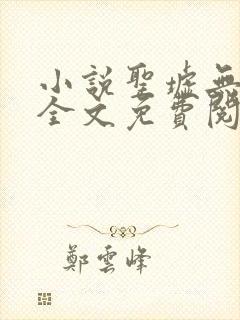 小說聖墟無
全文免費閱
鄭雲峰